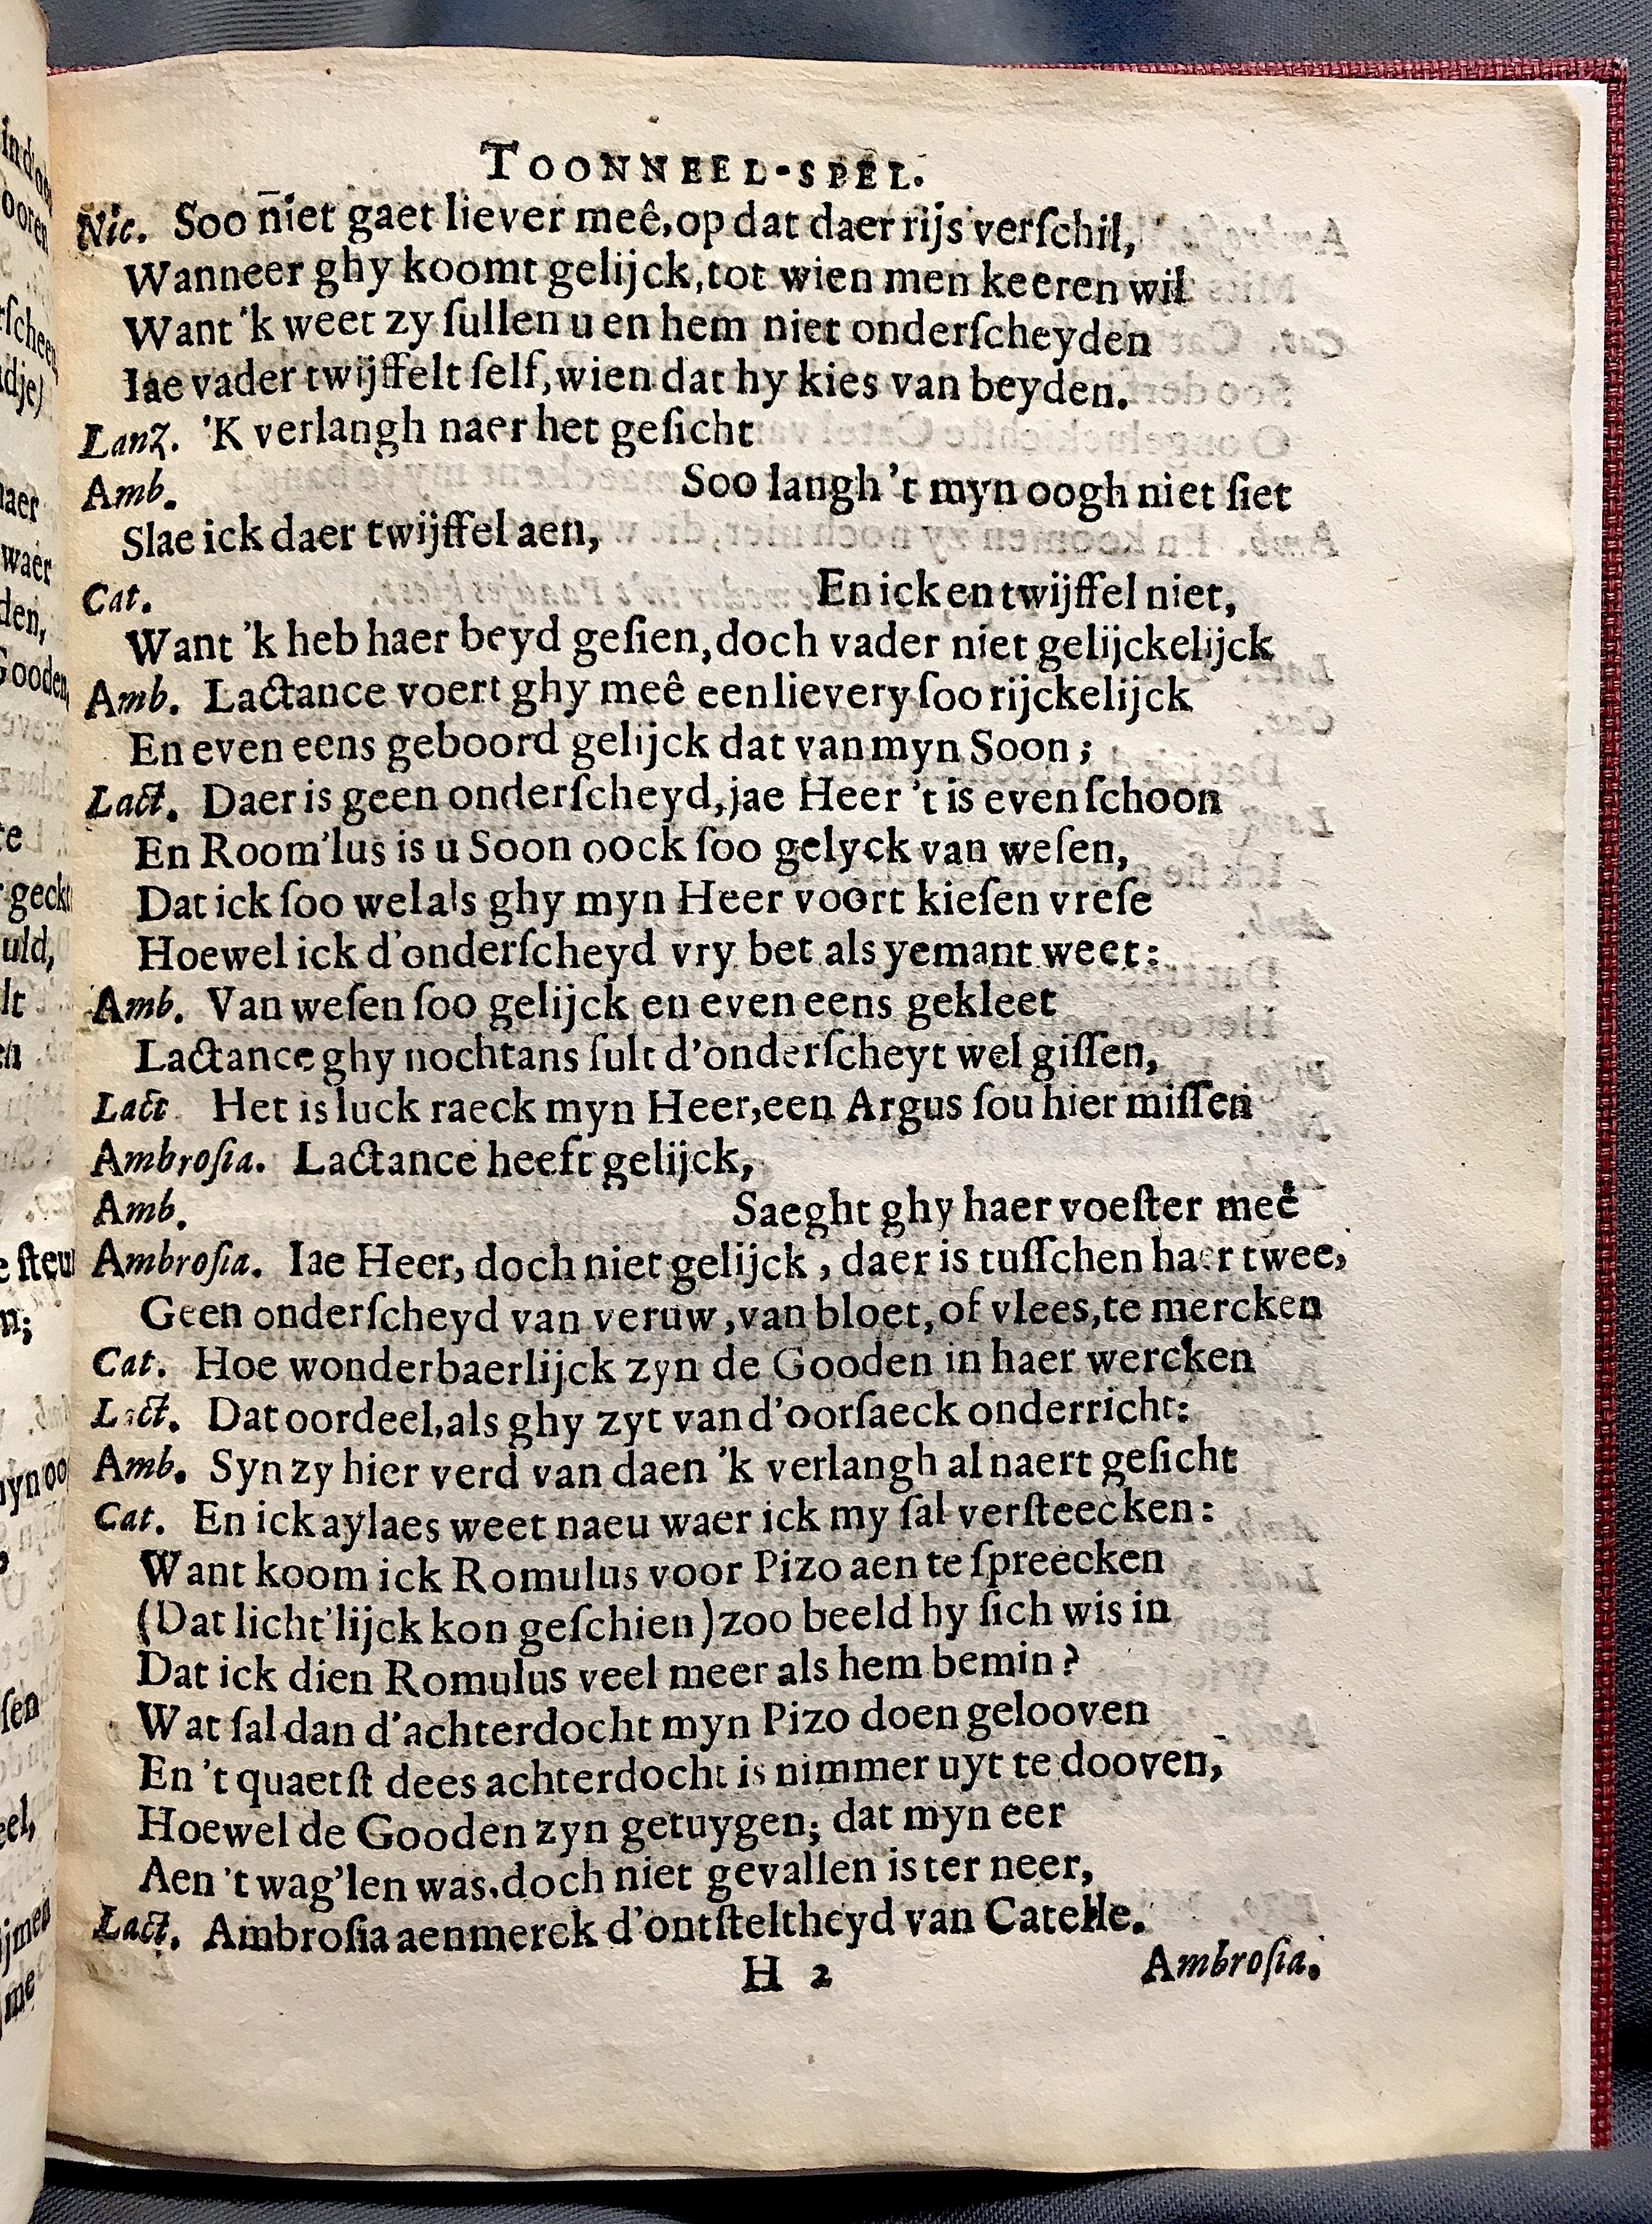 TOONNEEL-SPEL.
Nic. Soo niet gaet liever meê, op dat daer rijs verſchil,
Wanneer ghy koomt gelijck, tot wien men keeren wil
Want 'k weet zy ſullen u en hem niet onderſcheyden
Iae vader twijffelt ſelf, wien dat hy kies van beyden.
Lanz. 'K verlangh naer het geſicht
Amb. Soo langh 't myn oogh niet ſiet
Slae ick daer twijffel aen,
Cat. En ick en twijffel niet,
Want 'k heb haer beyd geſien, doch vader niet gelijckelijck
Amb. Lactance voert ghy meê een lievery ſoo rijckelijck
En even eens geboord gelijck dat van myn Soon;
Lact. Daer is geen onderſcheyd, jae Heer 't is even ſchoon
En Room'lus is u Soon oock ſoo gelyck van weſen,
Dat ick ſoo wel als ghy myn Heer voort kieſen vreſe
Hoewel ick d'onderſcheyd vry bet als yemant weet:
Amb. Van weſen ſoo gelijck en even eens gekleet
Lactance ghy nochtans ſult d'onderſcheyt wel giſſen,
Lact Het is luck raeck myn Heer, een Argus ſou hier miſſen
Ambroſia. Lactance heeft gelijck,
Amb. Saeght ghy haer voeſter meê
Ambroſia. Iae Heer, doch niet gelijck, daer is tuſſchen haer twee,
Geen onderſcheyd van veruw, van bloet, of vlees, te mercken
Cat. Hoe wonderbaerlijck zyn de Gooden in haer wercken
Lact. Dat oordeel, als ghy zyt van d'oorſaeck onderricht:
Amb. Syn zy hier verd van daen 'k verlangh al naert geſicht
Cat. En ick aylaes weet naeu waer ick my ſal verſteecken:
Want koom ick Romulus voor Pizo aen te ſpreecken
(Dat licht'lijck kon geſchien) zoo beeld hy ſich wis in
Dat ick dien Romulus veel meer als hem bemin?
Wat ſal dan d'achterdocht myn Pizo doen gelooven
En 't quaetſt dees achterdocht is nimmer uyt te dooven,
Hoewel de Gooden zyn getuygen; dat myn eer
Aen 't wag'len was, doch niet gevallen is ter neer,
Lact. Ambroſia aenmerck d'ontſteltheyd van Catelle.
H 2 Ambroſia.